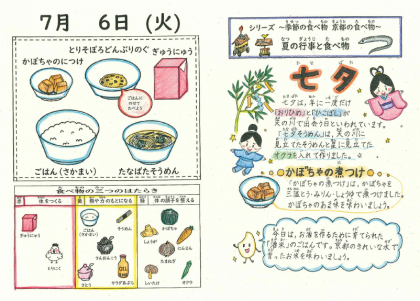 7月 6日 (火)
とりそぼろどんぶりのぐ
ぎゅうにゅう
かぼちゃのにつけ
ごはんに
のせて
たべよう
ごはん(さかまい)
たなばたそうめん
食べ物の三つのはたらき
赤 体をつくる
黄 熱や力のもとになる
緑 体の調子を整える
ぎゅうにゅう
とりにく
ごはん
(さかまい)
そうめん
さとう
サラダあぶら
かぼちゃ
しょうが
しいたけ
オクラ
シリーズ ~季節の食べ物 京都の食べ物~
夏の行事と食べ物
七夕
七夕は、年に一度だけ
「おりひめ」と「ひこぼし」が
天の川で出会う日といわれています。
「七夕そうめん」は、天の川に
見立てたそうめんと星に見立てた
オクラを入れて作りました。
かぼちゃの煮つけ
「かぼちゃの煮つけ」は、かぼちゃを
三温とう・みりん・しょうゆで煮つけました。
かぼちゃのあま味を味わいましょう。
今日は、お酒を作るために育てられた
「酒米」のごはんです。京都のきれいな水で
育ったお米を味わいましょう。